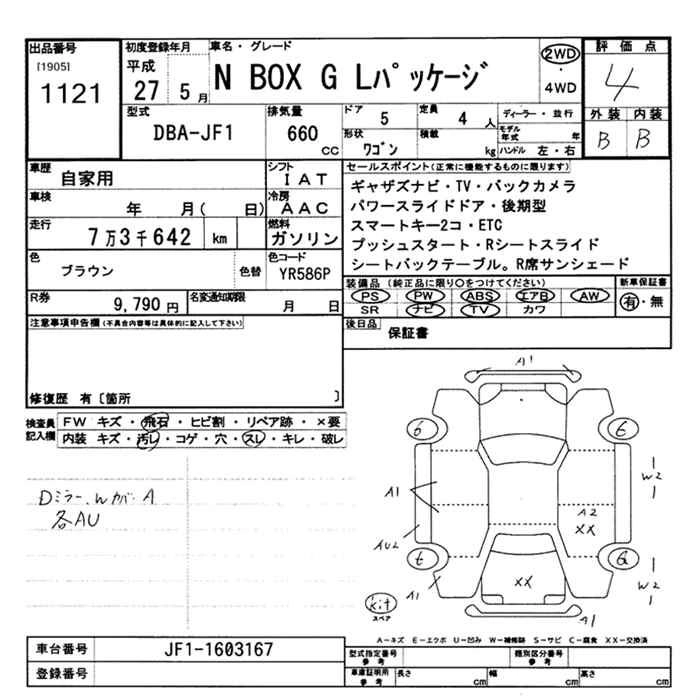 出品番号
[1905]
1121
初度登録年月
平成
27 5月
車名・グレード
N BOX G Lパッケージ
2WD
・
4WD
評価点
4
外装 内装
B B
型式
DBA-JF1
排気量
660
cc
ドア 5
定員 4 人
形状 ワゴン
積載 kg
ディーラー・並行
モデル年式 年
ハンドル 左・右
車歴
自家用
シフト
IAT
車検
年 月( 日)
冷房
AAC
走行
7万3千642 km
燃料
ガソリン
色
ブラウン
色替
色コード
YR586P
R券
9,790円
名変通知期限
月 日
セールスポイント(正常に機能するものに限ります)
ギャザズナビ・TV・バックカメラ
パワースライドドア・後期型
スマートキー2コ・ETC
プッシュスタート・Rシートスライド
シートバックテーブル。R席サンシェード
装備品(純正品に限り○をつけてください)
PS PW ABS エアB AW
SR ナビ TV カワ
新車保証書
有・無
後日品
保証書
注意事項申告欄(不具合内容等は具体的に記入して下さい)
修復歴 有〔箇所 〕
検査員記入欄
FW キズ・飛石・ヒビ割・リペア跡・×要
内装 キズ・汚レ・コゲ・穴・スレ・キレ・破レ
Dミラー、Wカバー A
各AU
A1
6
6
A1
W2
A2
XX
AU2
t
G
XX
A1
W2
kit
スペア
A1
A-キズ E-エクボ U-凹み W-補修跡 S-サビ C-腐食 XX-交換済
車台番号
JF1-1603167
登録番号
型式指定番号
参考
類別区分番号
参考
車庫証明用
参考
長さ cm
幅 cm
高さ cm